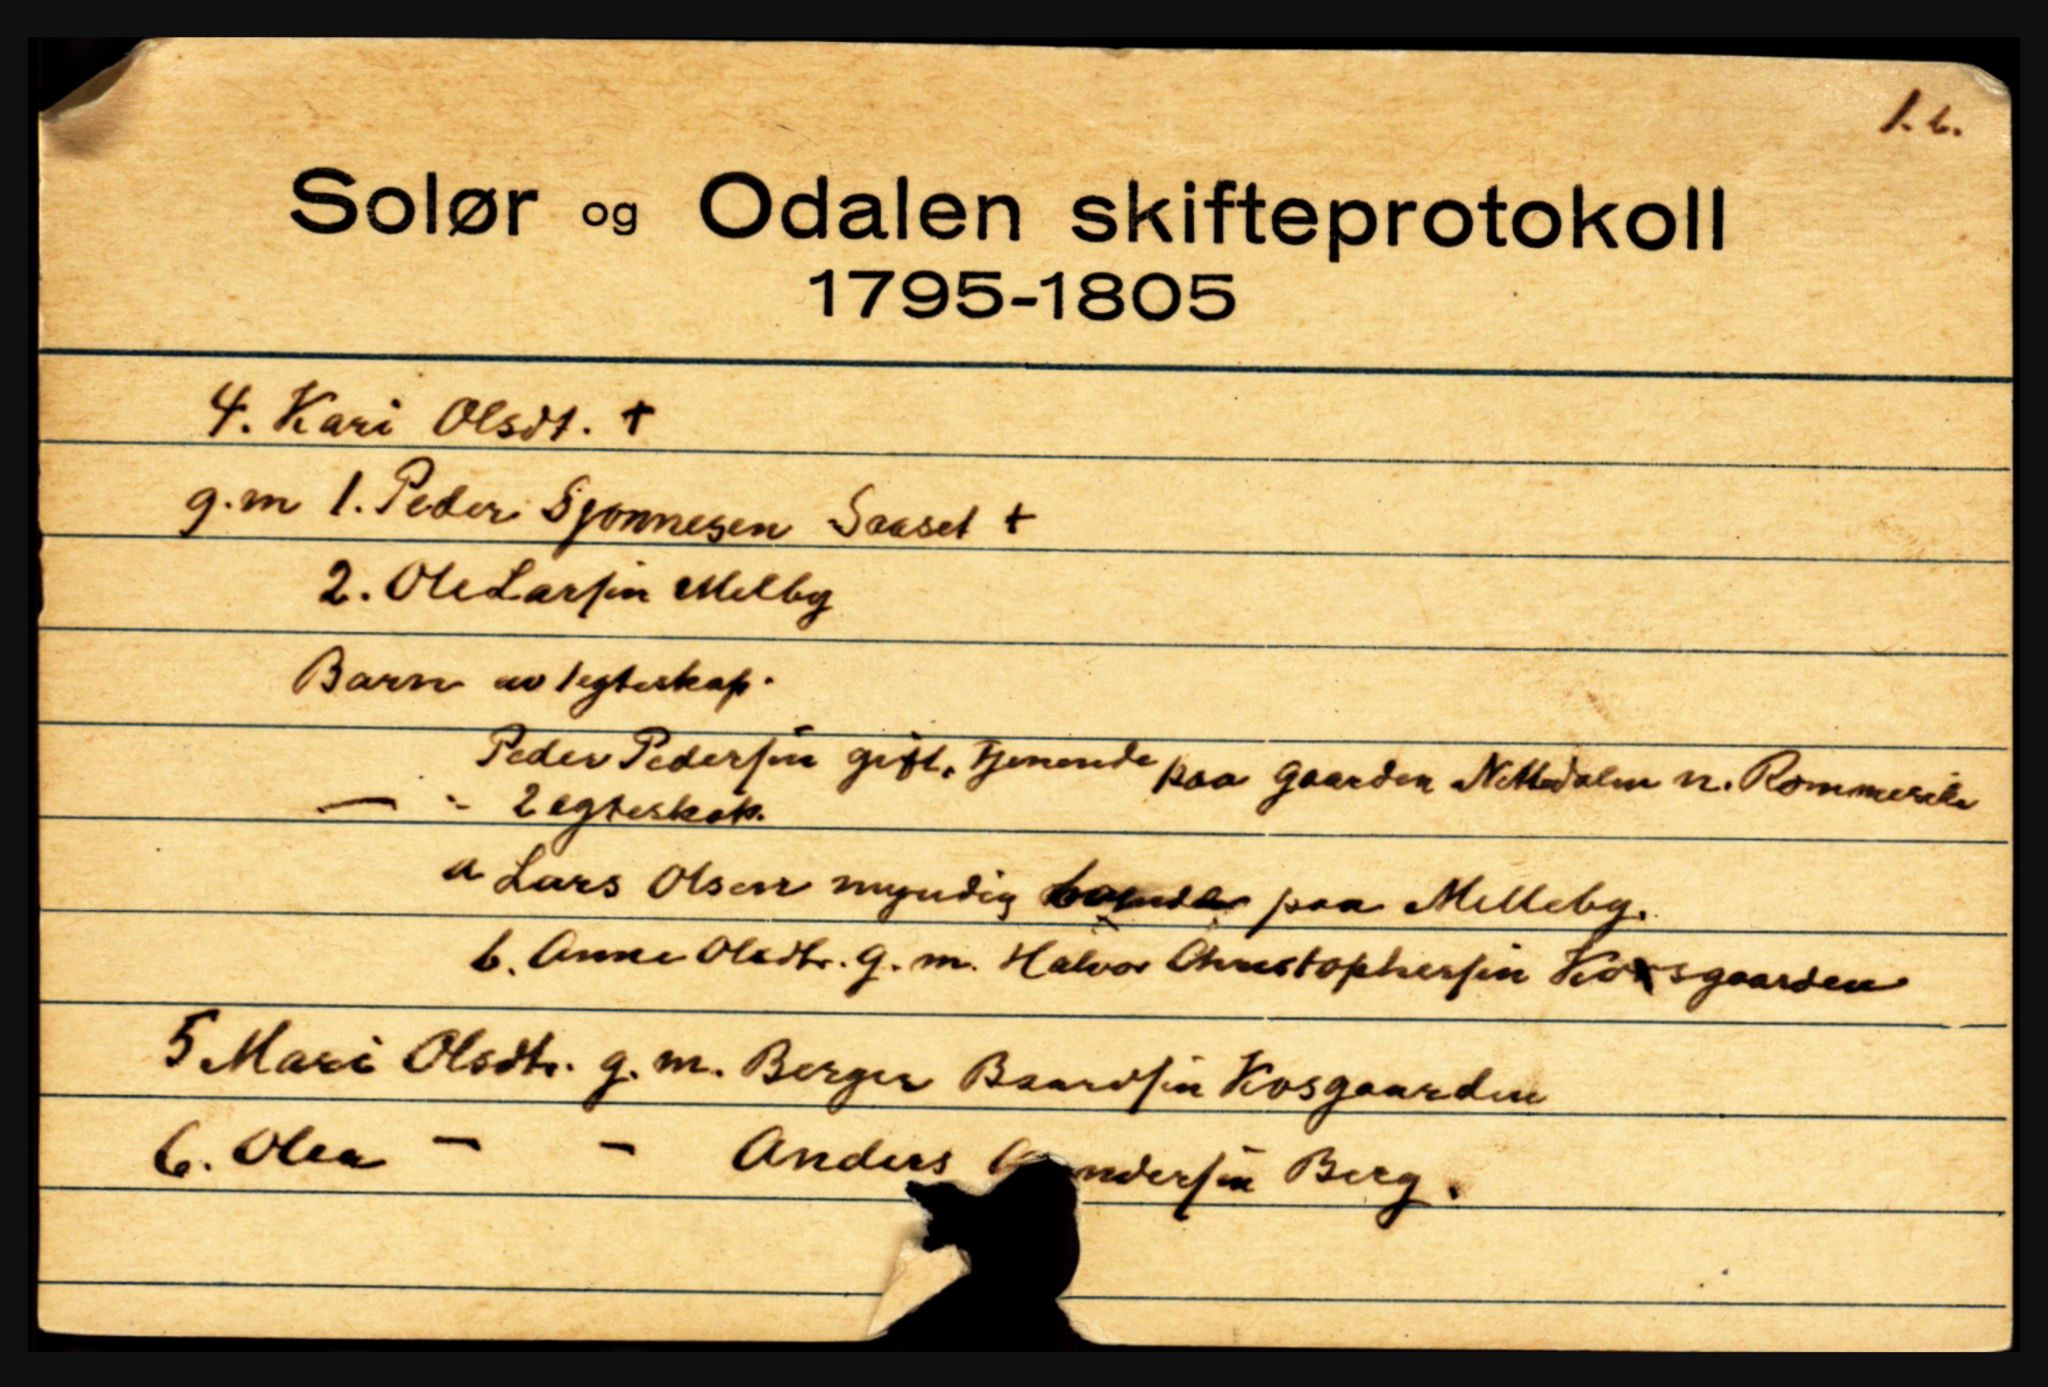 1. b.
Solør og Odalen skifteprotokoll
1795-1805
4. Kari Olsdt. +
g. m 1. Peder Sjonnesen Saaset +
2. Ole Larsen Melby
Barn av 1 egteskap.
Peder Pedersen gift, tjenende paa gaarden Nittedalen n. Rommerike
— " 2 egteskap.
a Lars Olsen myndig boende paa Melleby.
b. Anne Olsdtr. g. m. Halvor Christophersen Korsgaarden
5 Mari Olsdtr. g. m. Berger Baardsen Kosgaarden
6. Olea — — Anders Andersen Berg.